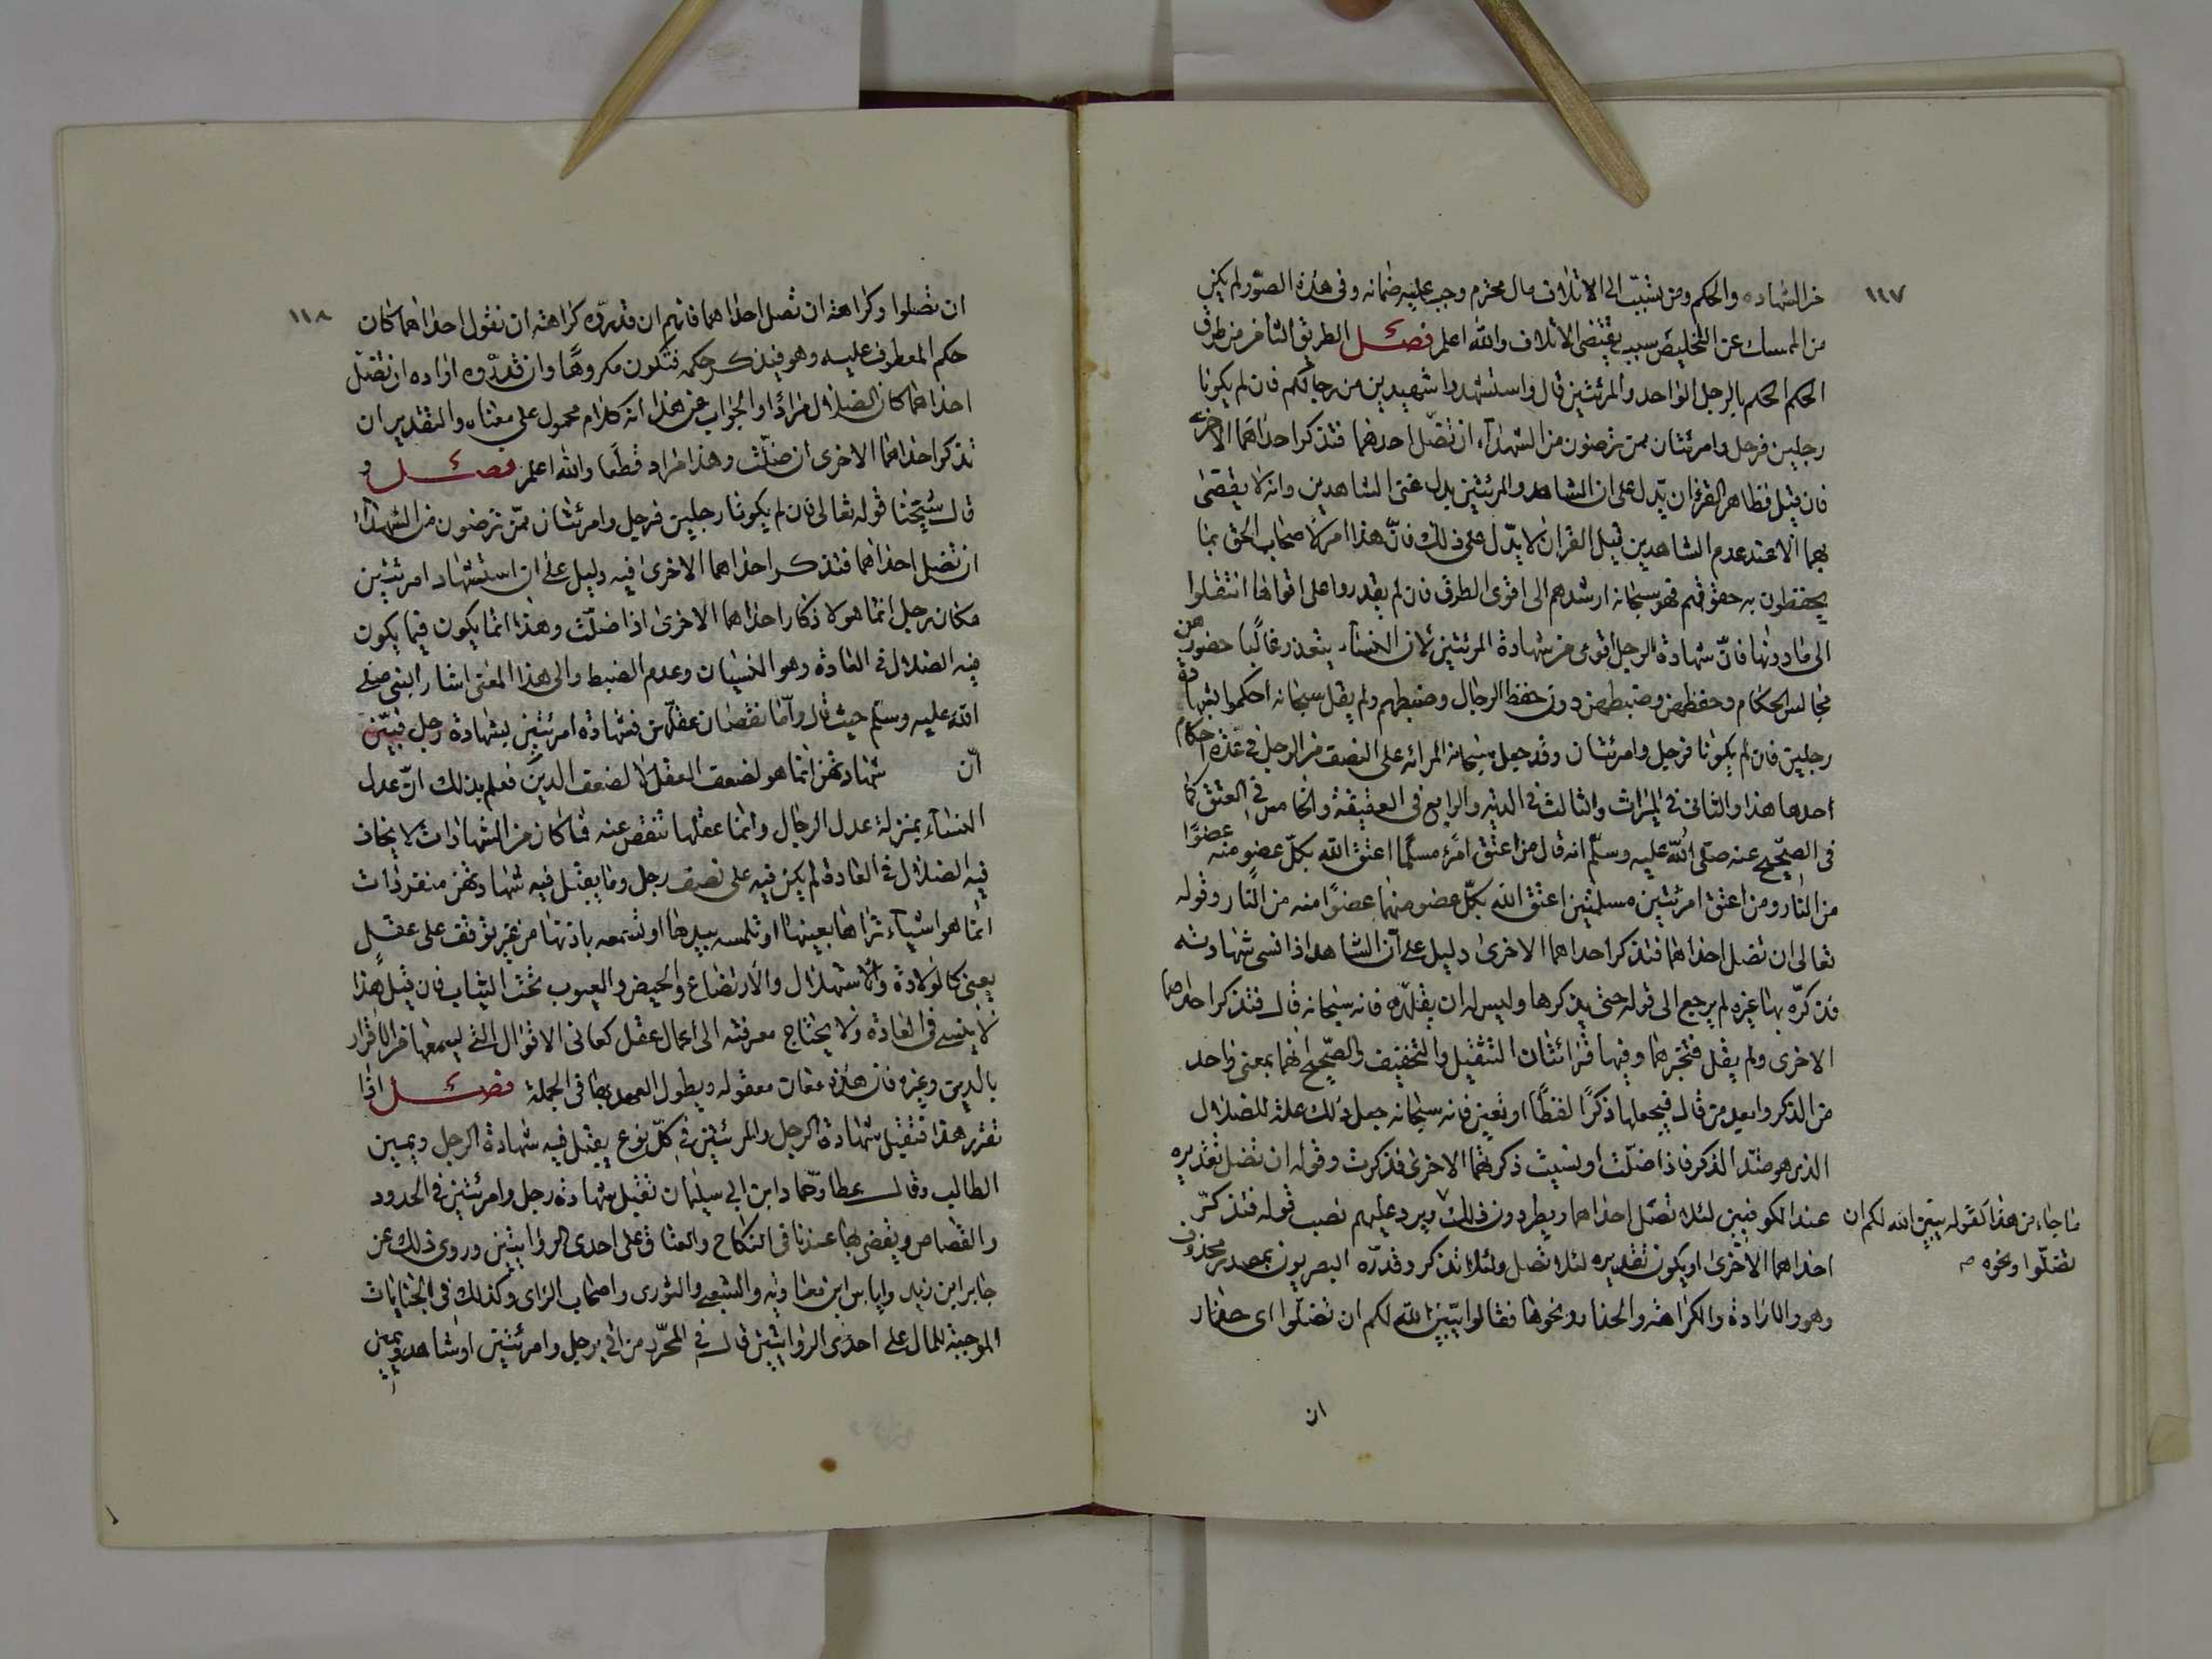 ١١٧
من الشهاده والحكم ومن يتسبّب الى الاتلاف مال محترم وجب عليه ضمانه وفى هذه الصّور لم يكن
من الممسك عن التخليص سبب يقتضى الاتلاف والله اعلم فصل الطريق الثامن من طرق
الحكم الحكم بالرجل الواحد والمرئتين قال واستشهدوا شهيدين من رجالكم فان لم يكونا
رجلين فرجل وامرئتان ممن ترضون من الشهدآء ان تضّل احدهما فتذكر احداهما الاخرى
فان قيل فظاهر القرءان يّدل على ان الشاهد والمرئتين بدل عن الشاهدين وانه لا يقضى
بهما الّا عند عدم الشاهدين قيل القران لا يدّل على ذلك فانّ هذا امر لاصحاب الحق بما
يحفظون به حقوقهم فهو سبحانه ارشدهم الى اقوى الطرق فان لم يقدروا على اقواها انتقلوا
الى ما دونها فانّ شهادة الرجل اقوى من شهادة المرئتين لان النسآء يتعذر غالبًا حضورهن
مجالس الحكام وحفظهن وضبطهن دون حفظ الرجال وضبطهم ولم يقل سبحانه احكموا بشهادة
رجلين فان لم يكونا فرجل وامرئتان وقد جعل سبحانه المرائه على النصف من الرجل فى عدّة احكام
احدها هذا والثانى فى الميراث والثالث فى الديه والرابع فى العقيقة والخامس فى العتق كما
فى الصّحيح عنه صلّى الله عليه وسلّم انه قال من اعتق امرًء مسلمًا اعتق الله بكلّ عضو منه عضوًا
من النار ومن اعتق امرئتين مسلمتين اعتق الله بكلّ عضو منهما عضوًا منه من النّار وقوله
تعالى ان تضل احداهما فتذكر احداهما الاخرى دليل على آن الشاهد اذا نسى شهادته
فذكرّه بها غيره لم يرجع الى قوله حتى يذكرها وليس له ان يقلّده فانه سبحانه قال فتذكر احداهما
الاخرى ولم يقل فتخبرها وفيها قرائتان التثقيل والتخفيف والصّحيح انهما بمعنى واحد
من الذكر وابعد من قال فيجعلها ذكرًا لفظًا او معين فانه سبحانه جعل ذلك علة للضلال
الذى هو ضدّ الذكر فاذا ضلّت او نسيت ذكرتها الاخرى فذكرت وقوله ان تضل تقديره
عند الكوفيين لئلا تضّل احداهما ويطردون ذلك ويرد عليهم نصب قوله فتذكرّ
احداهما الاخرى او يكون تقديره لئلا تضل ولئلا تذكر وقدّره البصريون بمصدر محذوف
وهو الارادة والكراهة والحذار ونحوها فقالوا يبّين الله لكم ان تضلّوا اى حذار
ما جاء من هذا كقوله يبيّن الله لكم ان
تضلّوا ونحوه صـ
ان
١١٨
ان تضلوا وكراهة ان تضل احداهما فانهم ان قدّروه كراهة ان نقول احداهما كان
حكم المعطوف عليه وهو فتذكر حكمه فتكون مكروهًا وان قدّروه اراده ان تضّل
احداهما كان الضلال مرادًا والجواب عن هذا انه كلام محمول على معناه والتقدير ان
تذكر احداهما الاخرى ان ضلّت وهذا مراد قطعًا والله اعلم فصل و
قال شيخنا قوله تعالى فان لم يكونا رجلين فرجل وامرئتان ممّن ترضون من الشهدآء
ان تضل احداهما فتذكر احداهما الاخرى فيه دليل على ان استشهاد امرئتين
مكان رجل انما هو لاذكار احداهما الاخرى اذا ضلّت وهذا انما يكون فيما يكون
فيه الضلال فى العادة وهو النسيان وعدم الضبط والى هذا المعنى اشار النبى صلى
الله عليه وسلّم حيث قال وآمّا نقصان عقلهّن فشهادة امرئتين بشهادة رجل فبيّن
انّ شهادتهن انما هو لضعف العقل لا لضعف الدين فعلم بذلك انّ عدل
النسآء بمنزلة عدل الرجال وانما عقلها تنقص عنه فما كان من الشهادات لا يخاف
فيه الضلال فى العادة لم يكن فيه على نصف رجل وما يقبل فيه شهادتهن منفردات
انما هو اشيآء تراها بعينها او تلمسه بيدها او تسمعه باذنها من غير توقف على عقل
يعنى كالولادة والاستهلال والارتضاع والحيض والعيوب تحت الثياب فان قيل هذا
لا ينسى فى العادة ولا يحتاج معرفته الى اعمال عقل كمعانى الاقوال التى ليسمعها من الاقرار
بالدين وغيره فان هذه معان معقوله ويطول العهد بها فى الجملة فصل اذا
تقرر هذا فتقبل شهادة الرجل والمرئتين فى كلّ نوع يقبل فيه شهادة الرجل ويمين
الطالب وقال عطا وحّماد ابن ابى سليمان تقبل شهادة رجل وامرئتين فى الحدود
والقصاص ويقضى بها عندنا فى النكاح والعتاق على احدى الروايتين وروى ذلك عن
جابر ابن زيد واياس ابن معاويه والشعبى والثورى واصحاب الراى وكذلك فى الجنايات
الموجبة للمال على احدى الروايتين قال فى المحرّر من اتى برجل وامرئتين او شاهد ويمين